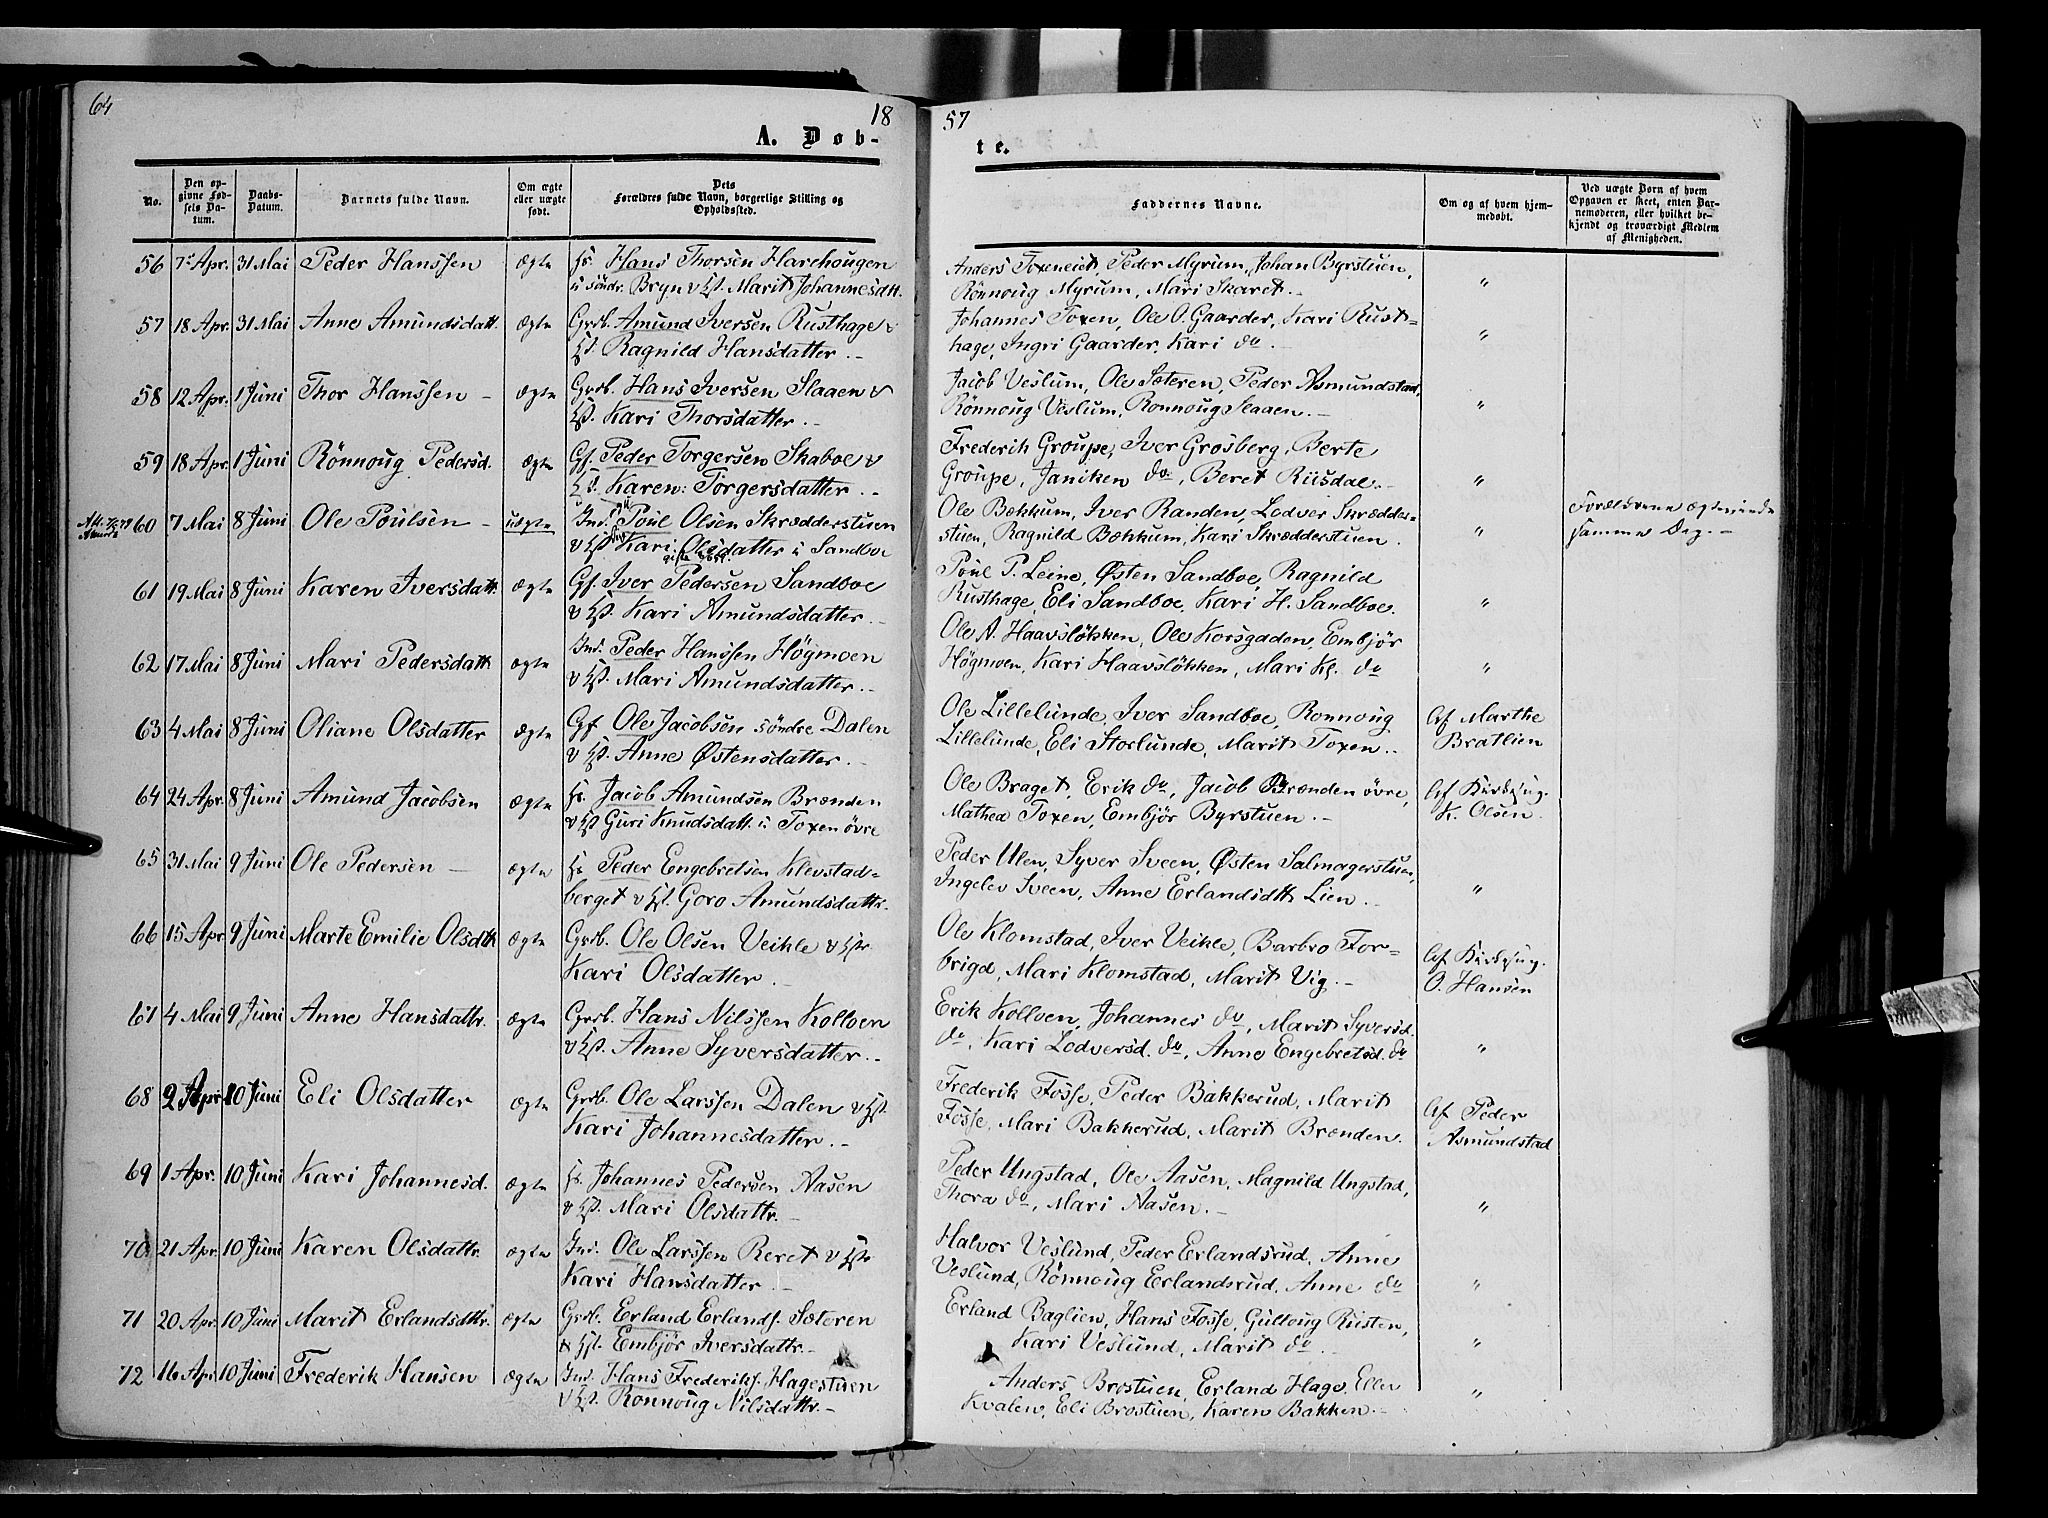 64
18
57
A. Døb-
te.
No.
Den op-
givne Fød-
sels Da-
tum.
Daabs-
Datum.
Barnets fulde Navn.
Om ægte
eller uægte
født.
Dets
Forældres fulde Navn, borgerlige Stilling og
Opholdssted.
Faddernes Navne.
Om og af hvem hjem-
medøbt.
Ved uægte Børn af hvem
Opgaven er skeet, enten Bar-
nemoderen, eller hvilket be-
kjendt og troværdigt Medlem
af Menigheden.
56 7de Apr. 31 Mai Peder Hanssen ægte Hans Thorsen Harehougen
i søndr. Bryn v Marit Johannesdtt.
Anders Toxeneiet, Peder Myrum, Johan Byrstuen, "
Rönnoug Myrum, Mari Skaret. -
57 18 Apr. 31 Mai Anne Amundsdatt. ægte Grdb. Amund Iversen Rusthage &
Ragnild Hansdatter. -
Johannes Toxen, Ole O. Gaarder, Kari Rust= "
hage, Ingri Gaarder, Kari do. -
58 12 Apr. 1 Juni Thor Hanssen - ægte Grdb. Hans Iversen Slaaen &
Kari Thorsdatter. -
Jacob Veslum, Ole Sæteren, Peder Asmundstad, "
Rönnoug Veslum, Ronnoug Slaaen. -
59 18 Apr. 1 Juni Rönnoug Pedersd. ægte Gf. Peder Torgersen Skaboe &
Karen Torgersdatter. -
Frederik Groupe, Iver Grosberg, Berte
Groupe, Janiken do, Beret Riisdal. - "
60 7 Mai 8 Juni Ole Poulsen - uægte Ind. Poul Olsen Skrædderstuen
v Kari Olsdatter i Sandboe
Ole Bækkum, Iver Randen, Lodver Skrædder= "
stuen, Ragnild Bækkum, Kari Skrædderstuen.
Forældrene ægteviede
samme Dag. -
61 19 Mai 8 Juni Karen Iversdatt. ægte Gf. Iver Pedersen Sandboe
v Kari Amundsdatter. -
Poul P. Leine, Østen Sandboe, Ragnild
Rusthage, Eli Sandboe, Kari H. Sandboe. "
62 17 Mai 8 Juni Mari Pedersdatt. ægte Ind. Peder Hanssen Högmoen
v Mari Amundsdatter. -
Ole A. Haavsløkken, Ole Korsgaden, Embjör
Högmoen, Kari Haavsløkken, Mari Kl. do "
63 4 Mai 8 Juni Oliane Olsdatter ægte Gf. Ole Jacobsen söndre Dalen
v Anne Østensdatter. -
Ole Lillelunde, Iver Sandboe, Ronnoug
Lillelunde, Eli Storlunde, Marit Toxen. -
Af Marthe
Bratlien
64 24 Apr. 8 Juni Amund Jacobsen ægte Jacob Amundsen Brænden
v Guri Knudsdatt. i Toxen övre
Ole Braget, Erik do, Jacob Brænden övre,
Mathea Toxen, Embjör Byrstuen. -
Af
K. Olsen.
65 31 Mai 9 Juni Ole Pedersen - ægte Peder Engebretsen Klevstad=
berget v Goro Amundsdattr.
Peder Ulen, Syver Sveen, Østen Salmagerstuen,
Ingelev Sveen, Anne Erlandsdtt. Lien. - "
66 15 Apr. 9 Juni Marte Emilie Olsdtt. ægte Grdb. Ole Olsen Veikle v
Kari Olsdatter. -
Ole Klomstad, Iver Veikle, Barbro For=
brigd, Mari Klomstad, Marit Vig. -
Af
O. Hansen
67 4 Mai 9 Juni Anne Hansdattr. ægte Grdb. Hans Nilssen Kolloen
v Anne Syversdatter. -
Erik Kolloen, Johannes do, Marit Syversd.
do, Kari Lodversd. do, Anne Engebretsd. do "
68 2 Apr. 10 Juni Eli Olsdatter ægte Grdb. Ole Larssen Dalen v
Kari Johannesdatter. -
Frederik Fosse, Peder Bakkerud, Marit
Fosse, Mari Bakkerud, Marit Brænden.
Af Peder
Asmundstad
69 1 Apr. 10 Juni Kari Johannesd. ægte Johannes Pedersen Aasen
v Mari Olsdattr. -
Peder Ungstad, Ole Aasen, Magnild Ungstad,
Thora do, Mari Aasen. - "
70 21 Apr. 10 Juni Karen Olsdattr. ægte Ind. Ole Larssen Reret v
Kari Hansdatter. -
Halvor Veslund, Peder Erlandsrud, Anne
Veslund, Rönnoug Erlandsrud, Anne do "
71 20 Apr. 10 Juni Marit Erlandsdttr. ægte Grdb. Erland Erlands. Sæteren
& Embjör Iversdattr. -
Erland Baglien, Hans Fosse, Gulloug Rusten,
Kari Veslund, Marit do. "
72 16 Apr. 10 Juni Frederik Hansen ægte Ind. Hans Frederiks. Hagestuen
v Ronnoug Nilsdattr. -
Anders Brostuen, Erland Hage, Ellen
Kvalen, Eli Brostuen, Karen Bakken. - "